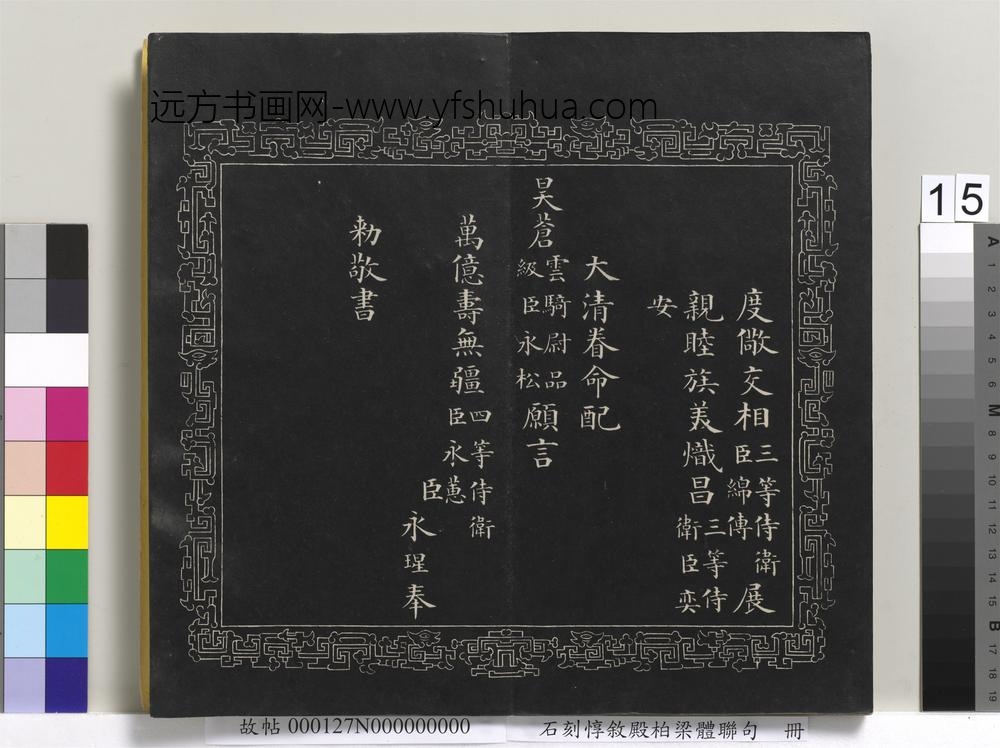 远方书画网-www.yfshuhua.com
度儆交相三等侍衛臣綿傳展
親睦族義熾昌三等侍衛臣奕
安
大清眷命配
昊蒼雲騎尉品級臣永松願言
萬億壽無疆四等侍衛臣永蕙
臣永瑆奉
勑敬書
15
故帖 000127N000000000
石刻惇敘殿柏梁體聯句 冊
A 1 2 3 4 5 6 M 8 9 10 11 12 13 14 15 B 17 18 19